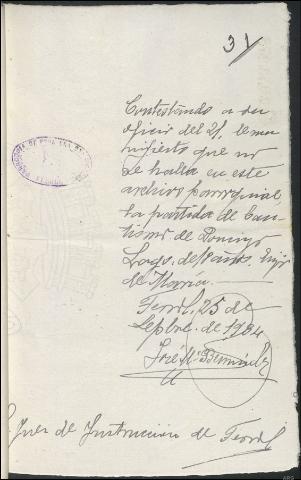 31
Contestando a su
oficio del 21, le ma
nifiesto que no
se halla en este
archivo parroquial
la partida de Bau
tismo de Domingo
Lago, de 18 años, hijo
de María.
Ferrol, 25 de
Sepbre. de 1904
José Mª Bermúdez
Juez de Instrucción de Ferrol